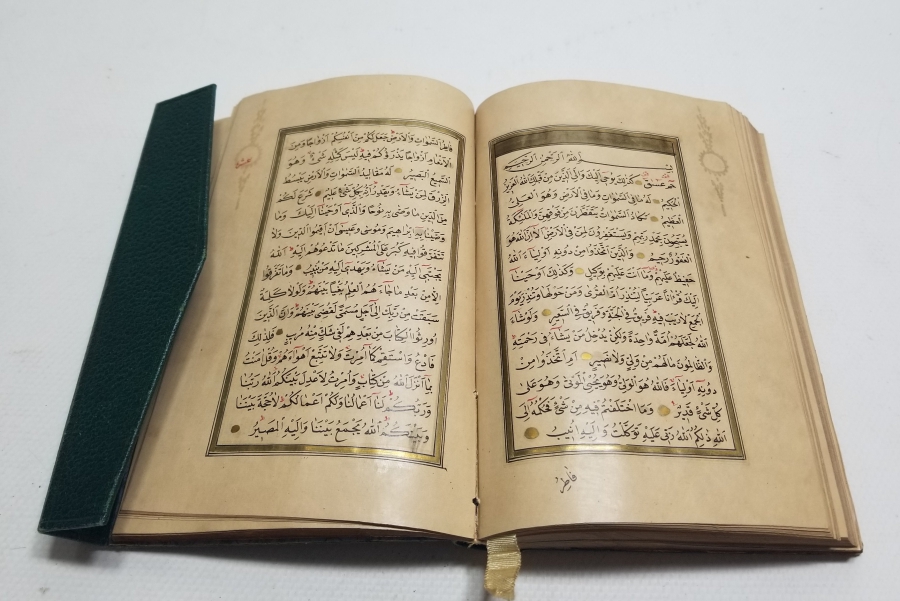 بِسْمِ اللهِ الرَّحْمٰنِ الرَّحِيمِ
حٰمٓ عٓسٓقٓ كَذٰلِكَ يُوحِي اِلَيْكَ وَاِلَى الَّذِينَ مِنْ قَبْلِكَ اللهُ الْعَزِيزُ
الْحَكِيمُ لَهُ مَا فِي السَّمٰوَاتِ وَمَا فِي الْاَرْضِ وَهُوَ الْعَلِيُّ
الْعَظِيمُ تَكَادُ السَّمٰوَاتُ يَتَفَطَّرْنَ مِنْ فَوْقِهِنَّ وَالْمَلٰٓئِكَةُ
يُسَبِّحُونَ بِحَمْدِ رَبِّهِمْ وَيَسْتَغْفِرُونَ لِمَنْ فِي الْاَرْضِ اَلَا اِنَّ اللهَ هُوَ
الْغَفُورُ الرَّحِيمُ وَالَّذِينَ اتَّخَذُوا مِنْ دُونِهِ اَوْلِيَاءَ اللهُ
حَفِيظٌ عَلَيْهِمْ وَمَا اَنْتَ عَلَيْهِمْ بِوَكِيلٍ وَكَذٰلِكَ اَوْحَيْنَا
اِلَيْكَ قُرْاٰنًا عَرَبِيًّا لِتُنْذِرَ اُمَّ الْقُرٰى وَمَنْ حَوْلَهَا وَتُنْذِرَ يَوْمَ
الْجَمْعِ لَا رَيْبَ فِيهِ فَرِيقٌ فِي الْجَنَّةِ وَفَرِيقٌ فِي السَّعِيرِ وَلَوْ شَاءَ
اللهُ لَجَعَلَهُمْ اُمَّةً وَاحِدَةً وَلٰكِنْ يُدْخِلُ مَنْ يَشَاءُ فِي رَحْمَتِهِ
وَالظَّالِمُونَ مَا لَهُمْ مِنْ وَلِيٍّ وَلَا نَصِيرٍ اَمِ اتَّخَذُوا مِنْ
دُونِهِ اَوْلِيَاءَ فَاللهُ هُوَ الْوَلِيُّ وَهُوَ يُحْيِي الْمَوْتٰى وَهُوَ عَلٰى
كُلِّ شَيْءٍ قَدِيرٌ وَمَا اخْتَلَفْتُمْ فِيهِ مِنْ شَيْءٍ فَحُكْمُهُ اِلَى
اللهِ ذٰلِكُمُ اللهُ رَبِّي عَلَيْهِ تَوَكَّلْتُ وَاِلَيْهِ اُنِيبُ
فَاطِرُ
فَاطِرُ السَّمٰوَاتِ وَالْاَرْضِ جَعَلَ لَكُمْ مِنْ اَنْفُسِكُمْ اَزْوَاجًا وَمِنَ
الْاَنْعَامِ اَزْوَاجًا يَذْرَؤُكُمْ فِيهِ لَيْسَ كَمِثْلِهِ شَيْءٌ وَهُوَ
السَّمِيعُ الْبَصِيرُ لَهُ مَقَالِيدُ السَّمٰوَاتِ وَالْاَرْضِ يَبْسُطُ
الرِّزْقَ لِمَنْ يَشَاءُ وَيَقْدِرُ اِنَّهُ بِكُلِّ شَيْءٍ عَلِيمٌ شَرَعَ لَكُمْ
مِنَ الدِّينِ مَا وَصّٰى بِهِ نُوحًا وَالَّذِي اَوْحَيْنَا اِلَيْكَ وَمَا
وَصَّيْنَا بِهِ اِبْرٰهِيمَ وَمُوسٰى وَعِيسٰى اَنْ اَقِيمُوا الدِّينَ وَلَا
تَتَفَرَّقُوا فِيهِ كَبُرَ عَلَى الْمُشْرِكِينَ مَا تَدْعُوهُمْ اِلَيْهِ اَللهُ
يَجْتَبِي اِلَيْهِ مَنْ يَشَاءُ وَيَهْدِي اِلَيْهِ مَنْ يُنِيبُ وَمَا تَفَرَّقُوا
اِلَّا مِنْ بَعْدِ مَا جَاءَهُمُ الْعِلْمُ بَغْيًا بَيْنَهُمْ وَلَوْلَا كَلِمَةٌ
سَبَقَتْ مِنْ رَبِّكَ اِلٰى اَجَلٍ مُسَمًّى لَقُضِيَ بَيْنَهُمْ وَاِنَّ الَّذِينَ
اُورِثُوا الْكِتَابَ مِنْ بَعْدِهِمْ لَفِي شَكٍّ مِنْهُ مُرِيبٍ فَلِذٰلِكَ
فَادْعُ وَاسْتَقِمْ كَمَا اُمِرْتَ وَلَا تَتَّبِعْ اَهْوَاءَهُمْ وَقُلْ اٰمَنْتُ
بِمَا اَنْزَلَ اللهُ مِنْ كِتَابٍ وَاُمِرْتُ لِاَعْدِلَ بَيْنَكُمُ اللهُ رَبُّنَا
وَرَبُّكُمْ لَنَا اَعْمَالُنَا وَلَكُمْ اَعْمَالُكُمْ لَا حُجَّةَ بَيْنَنَا
وَبَيْنَكُمُ اللهُ يَجْمَعُ بَيْنَنَا وَاِلَيْهِ الْمَصِيرُ